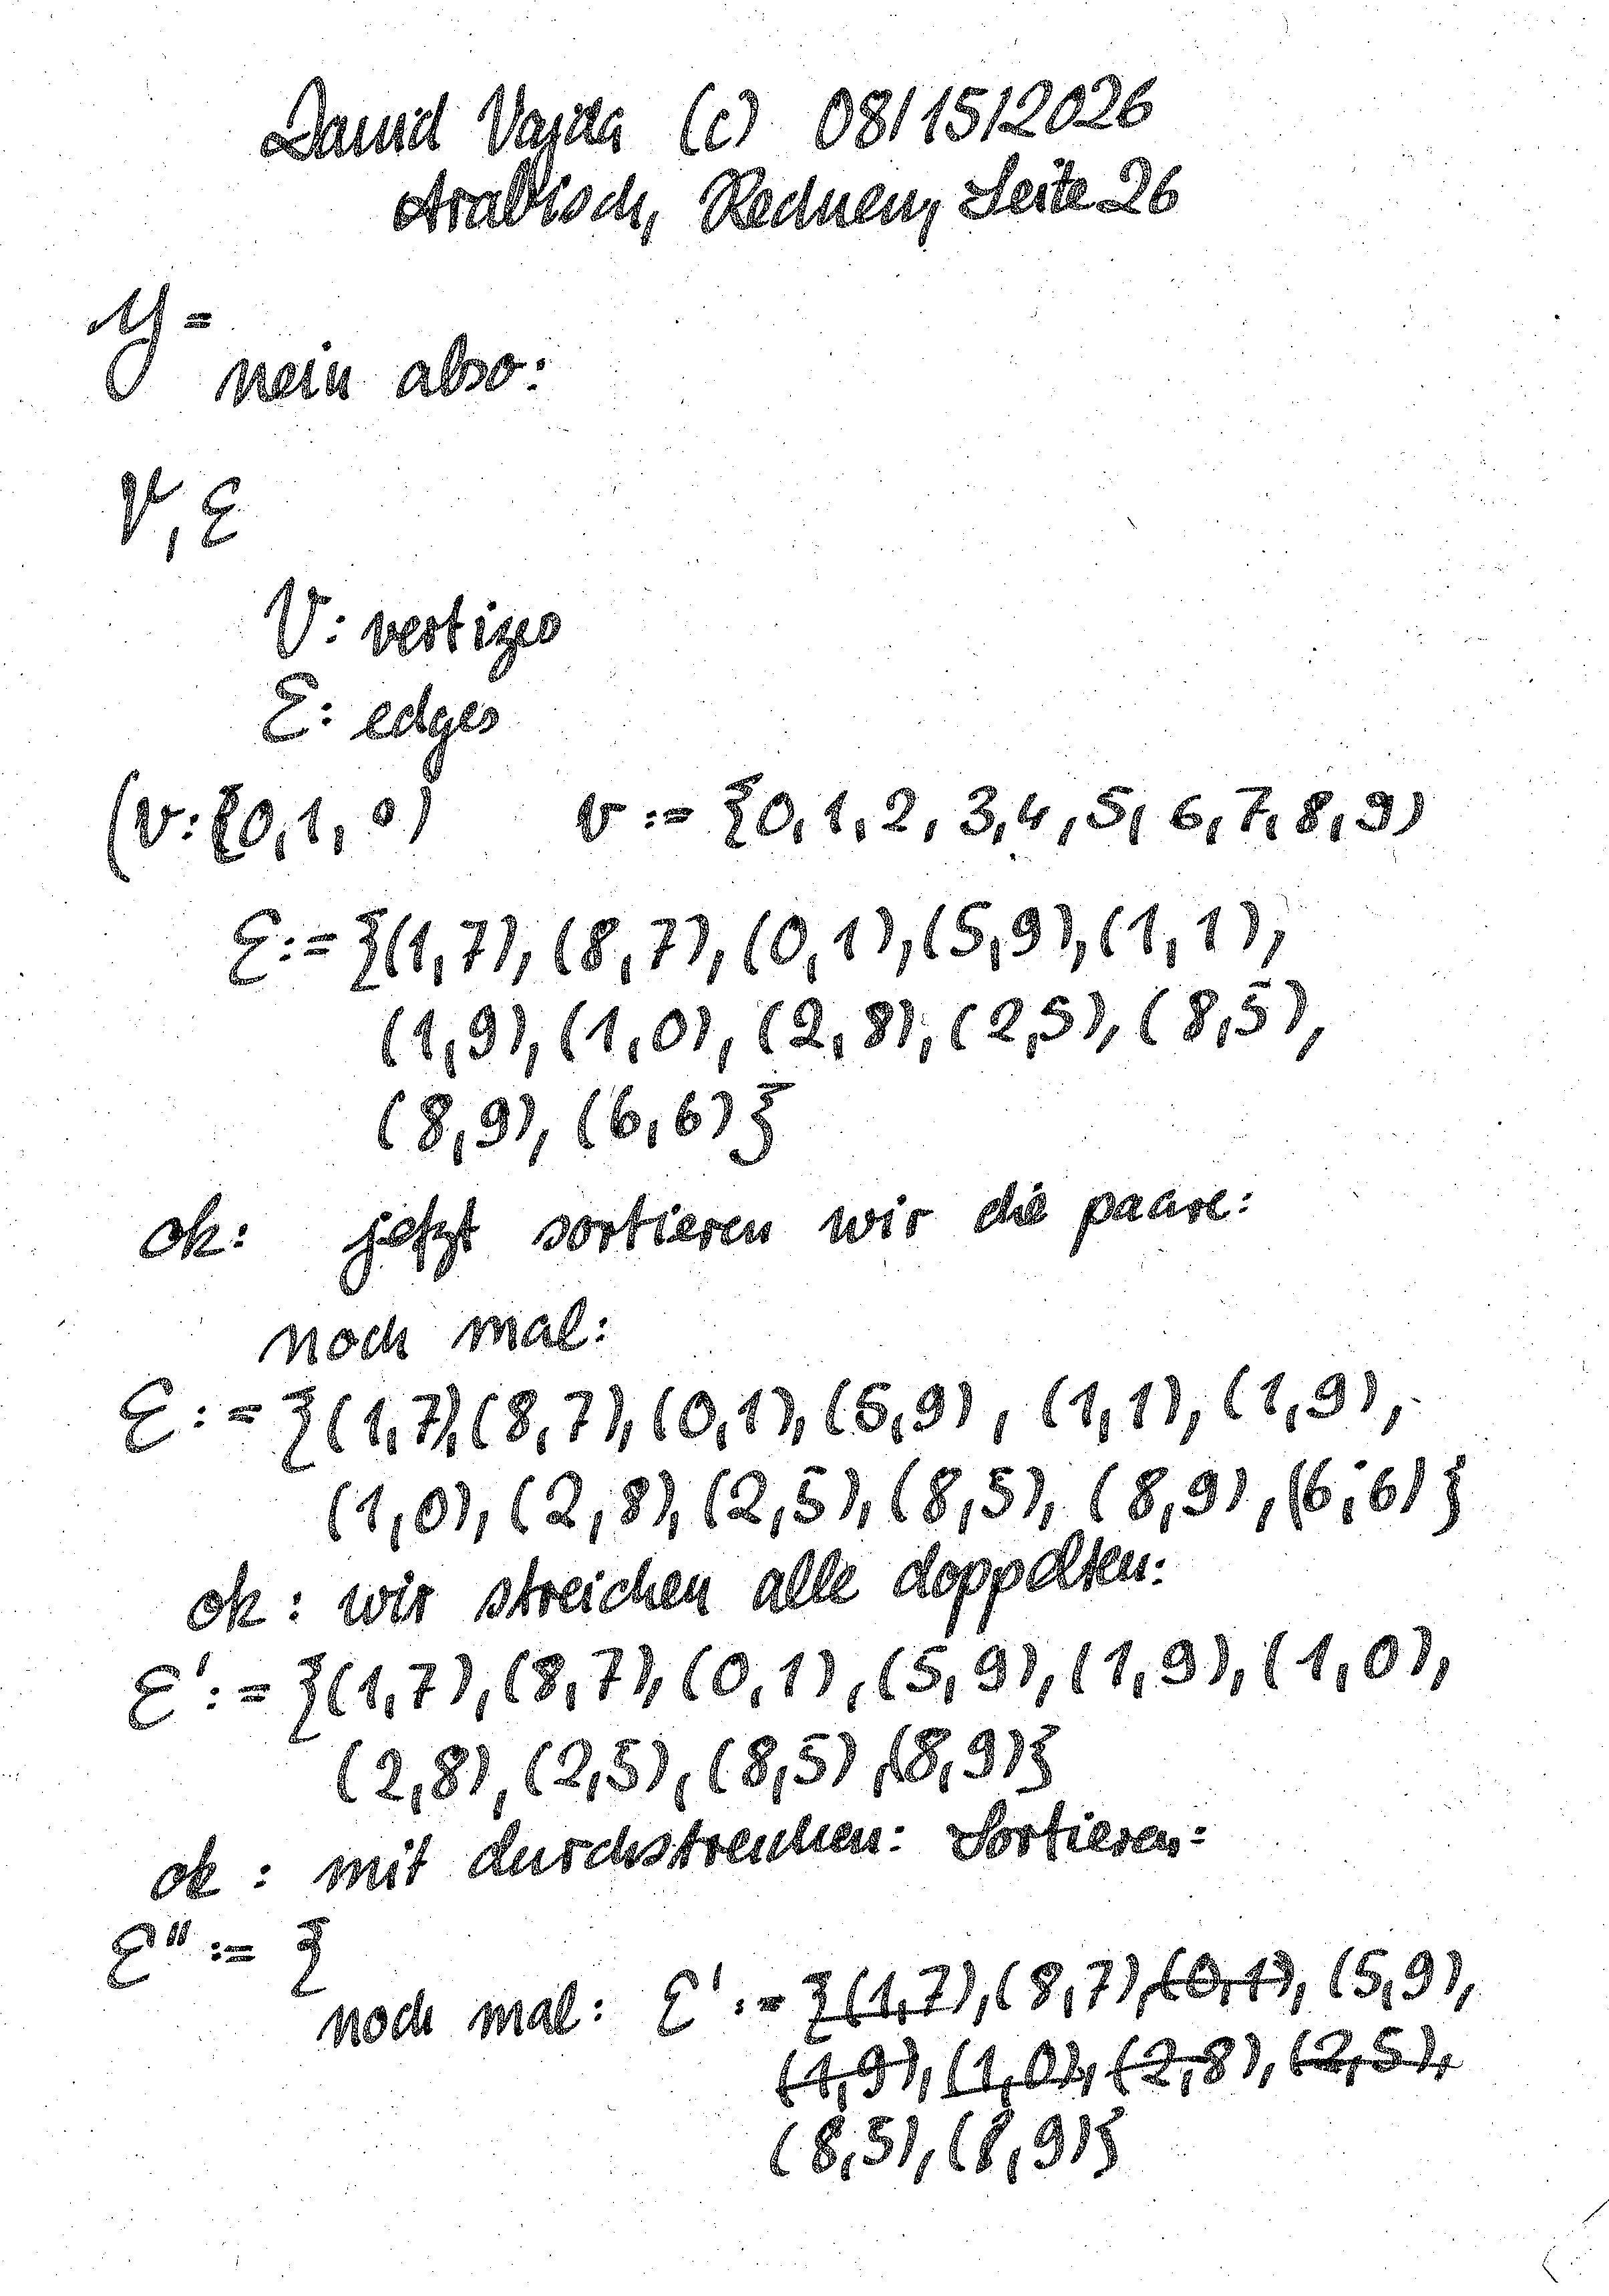 David Vajda (c) 08/15/2026
Arabisch, Rechnen, Seite 26
y =
nein also:
V, E
V: vertizes
E: edges
(V:{0,1, 0) V := {0,1,2,3,4,5,6,7,8,9)
E:= {(1,7), (8,7), (0,1),(5,9),(1,1),
(1,9),(1,0), (2,8),(2,5), (8,5),
(8,9), (6,6)}
ok: jetzt sortieren wir die paare:
noch mal:
E := {(1,7),(8,7),(0,1),(5,9), (1,1), (1,9),
(1,0), (2,8), (2,5), (8,5), (8,9), (6,6)}
ok: wir streichen alle doppelten:
E' := {(1,7),(8,7),(0,1),(5,9),(1,9),(1,0),
(2,8),(2,5),(8,5),(8,9)}
ok: mit durchstreichen: Sortieren:
E'' := {
noch mal: E' := {(1,7),(8,7),(0,1),(5,9),
(1,9),(1,0),(2,8),(2,5),
(8,5),(8,9)}